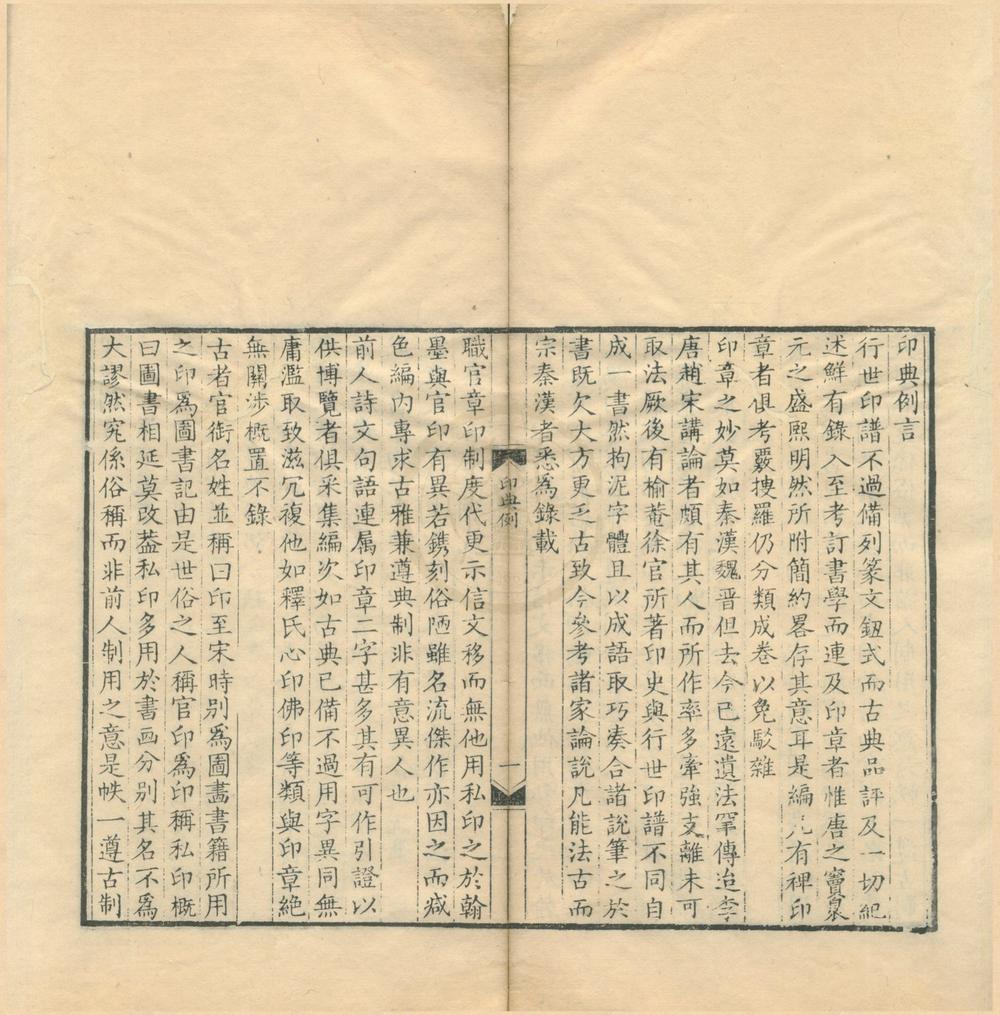 印典例言
行世印譜不過備列篆文鈕式而古典品評及一切紀
述鮮有錄入至考訂書學而連及印章者惟唐之竇臮
元之盛熙明然所附簡約畧存其意耳是編凡有裨印
章者俱考覈搜羅仍分類成卷以免駁雜
印章之妙莫如秦漢魏晉但去今已遠遺法罕傳迨李
唐趙宋講論者頗有其人而所作率多牽強支離未可
取法厥後有榆菴徐官所著印史與行世印譜不同自
成一書然拘泥字體且以成語取巧湊合諸說筆之於
書既欠大方更乏古致今參考諸家論說凡能法古而
宗秦漢者悉爲錄載
印典例
一
職官章印制度代更示信文移而無他用私印之於翰
墨與官印有異若鐫刻俗陋雖名流傑作亦因之而減
色編內專求古雅兼遵典制非有意異人也
前人詩文句語連属印章二字甚多其有可作引證以
供博覽者俱采集編次如古典已備不過用字異同無
庸濫取致滋冗複他如釋氏心印佛印等類與印章絕
無關涉概置不錄
古者官銜名姓並稱曰印至宋時別爲圖畵書籍所用
之印爲圖書記由是世俗之人稱官印爲印稱私印概
曰圖書相延莫改葢私印多用於書画分別其名不爲
大謬然究係俗稱而非前人制用之意是帙一遵古制